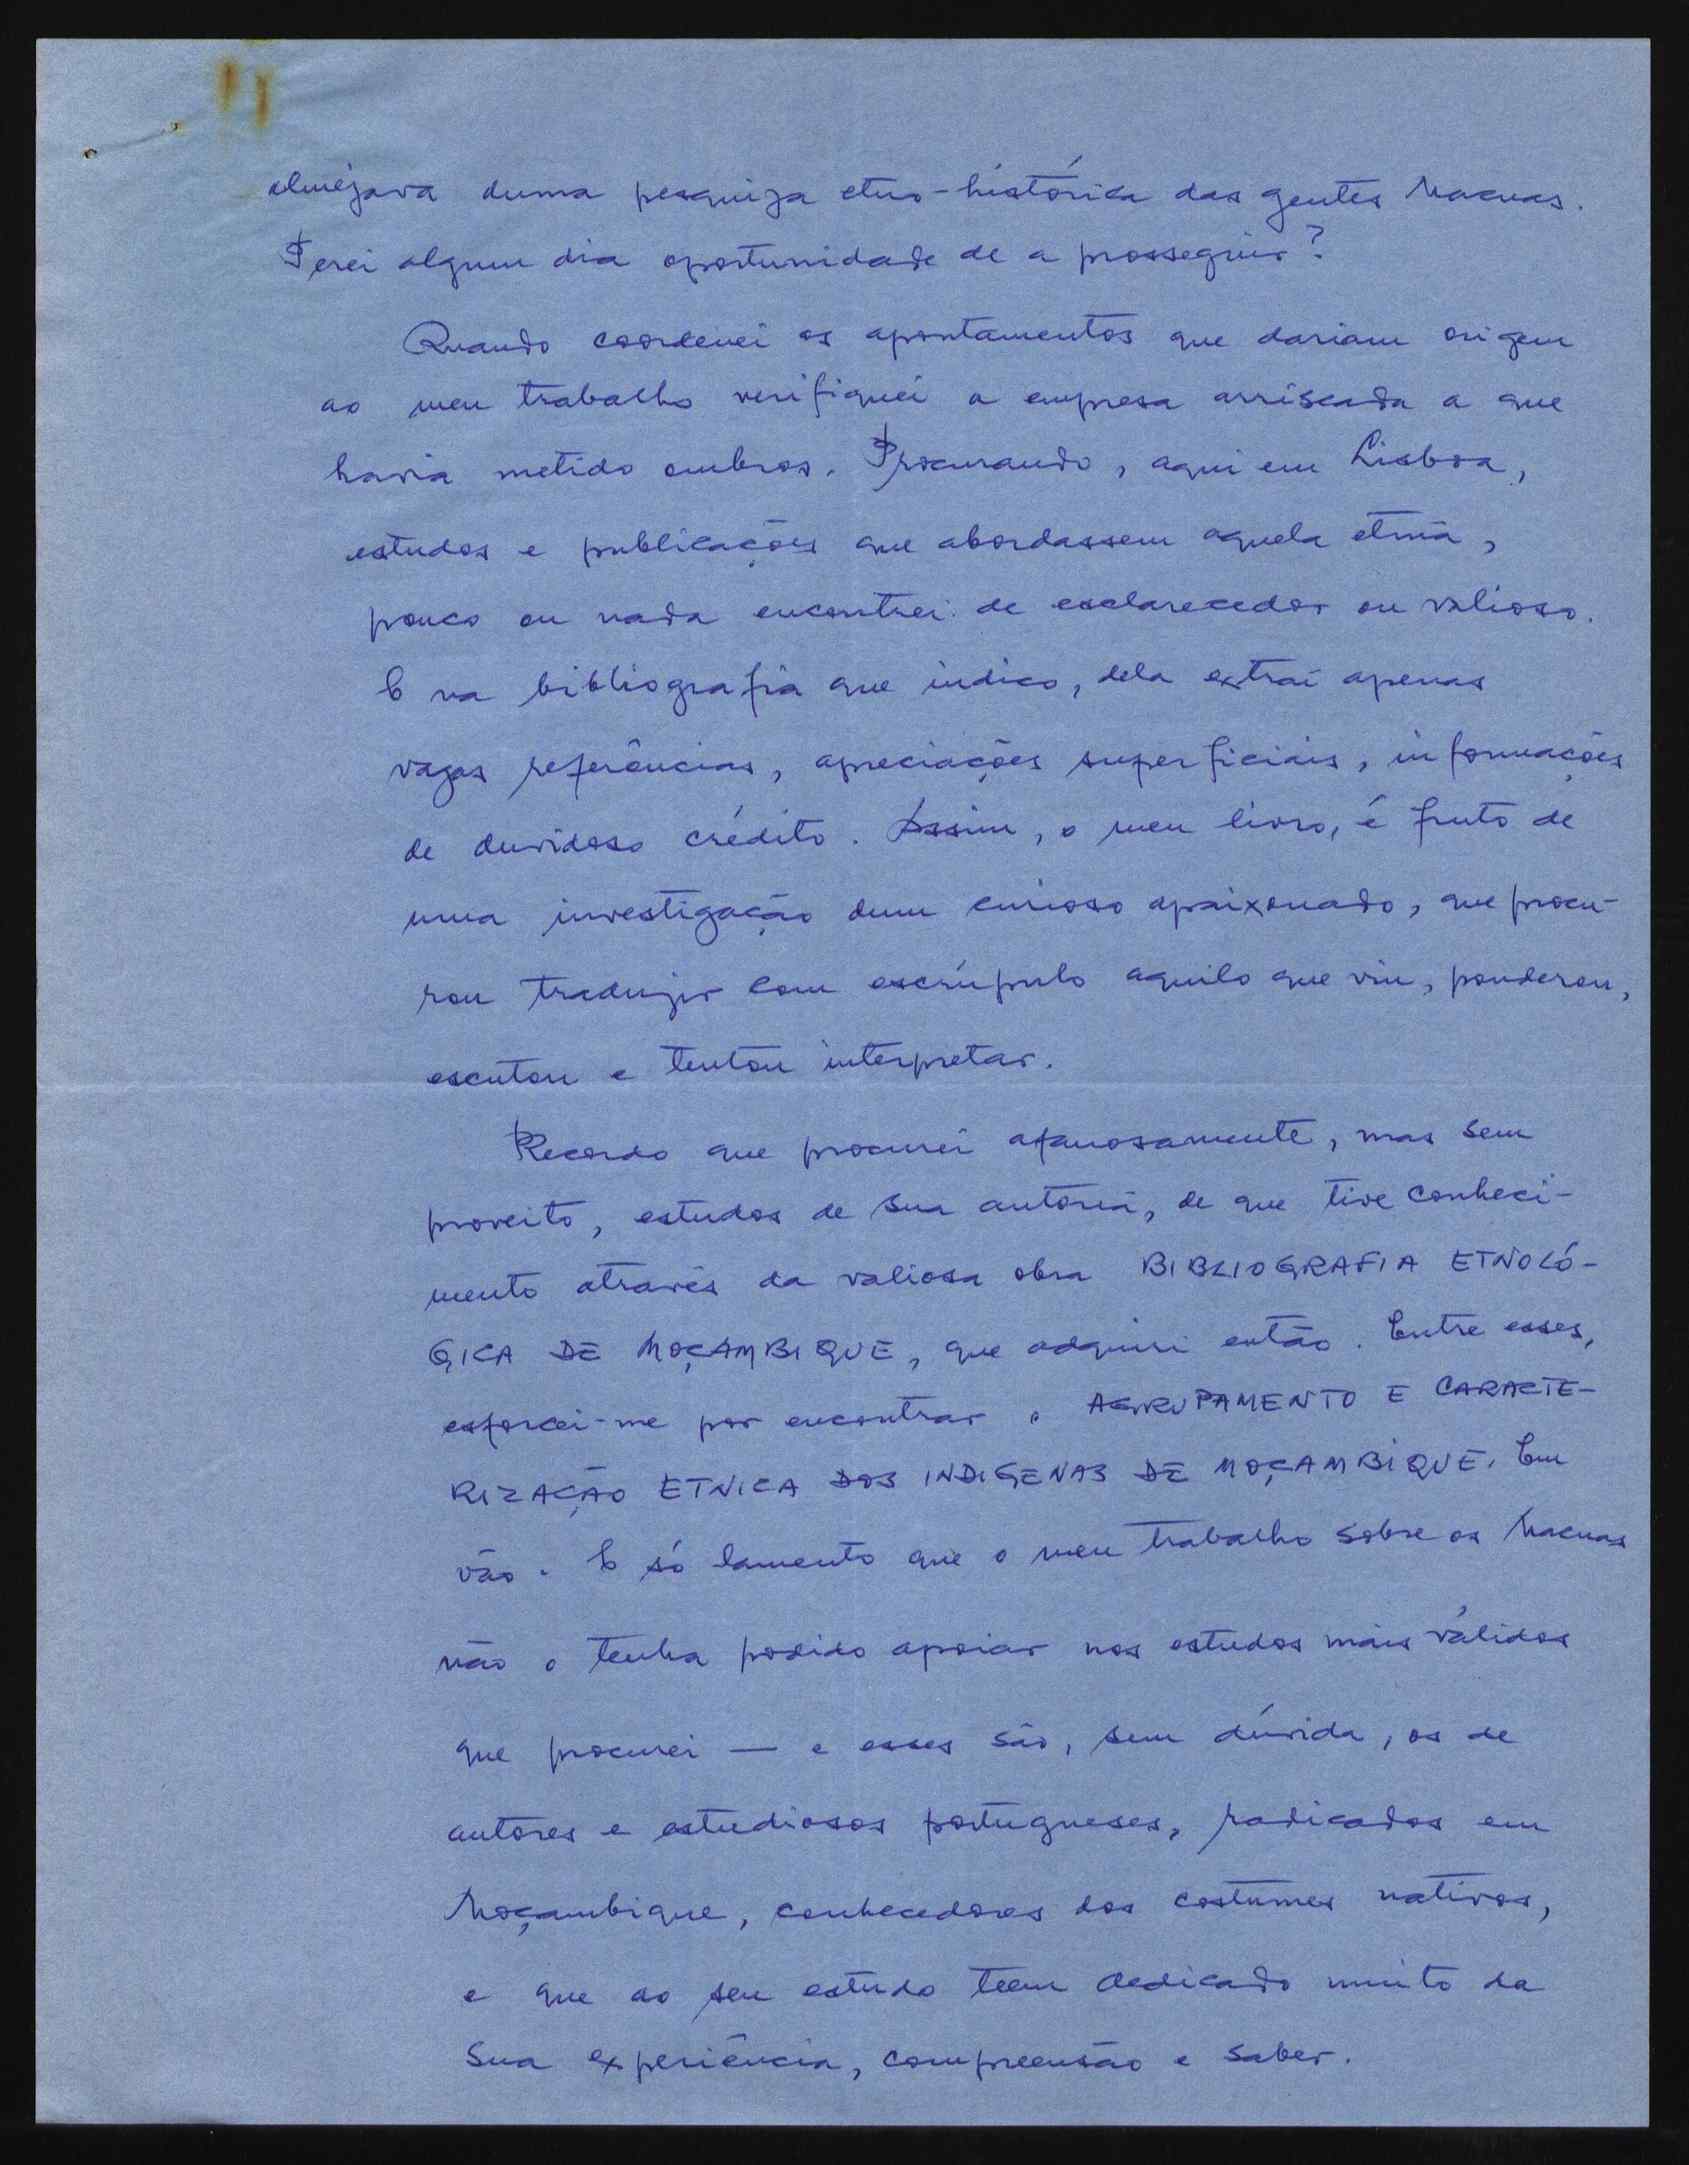 almejava duma pesquiza etno-histórica das gentes Macuas.
Terei algum dia oportunidade de a prosseguir?
Quando coordenei os apontamentos que dariam origem
ao meu trabalho verifiquei a empresa arriscada a que
havia metido ombros. Procurando, aqui em Lisboa,
estudos e publicações que abordassem aquela etnia,
pouco ou nada encontrei de esclarecedor ou valioso.
E na bibliografia que indico, dela extraí apenas
vagas referências, apreciações superficiais, informações
de duvidoso crédito. Assim, o meu livro, é fruto de
uma investigação dum curioso apaixonado, que procu-
rou traduzir com escrúpulo aquilo que viu, ponderou,
escutou e tentou interpretar.
Recordo que procurei afanosamente, mas sem
proveito, estudos de sua autoria, de que tive conheci-
mento através da valiosa obra BIBLIOGRAFIA ETNOLÓ-
GICA DE MOÇAMBIQUE, que adquiri então. Entre esses,
esforcei-me por encontrar o AGRUPAMENTO E CARACTE-
RIZAÇÃO ETNICA DOS INDIGENAS DE MOÇAMBIQUE. Em
vão. E só lamento que o meu trabalho sobre os Macuas
não o tenha podido apoiar nos estudos mais válidos
que procurei — e esses são, sem dúvida, os de
autores e estudiosos portugueses, radicados em
Moçambique, conhecedores dos costumes nativos,
e que ao seu estudo teem dedicado muito da
sua experiência, compreensão e saber.